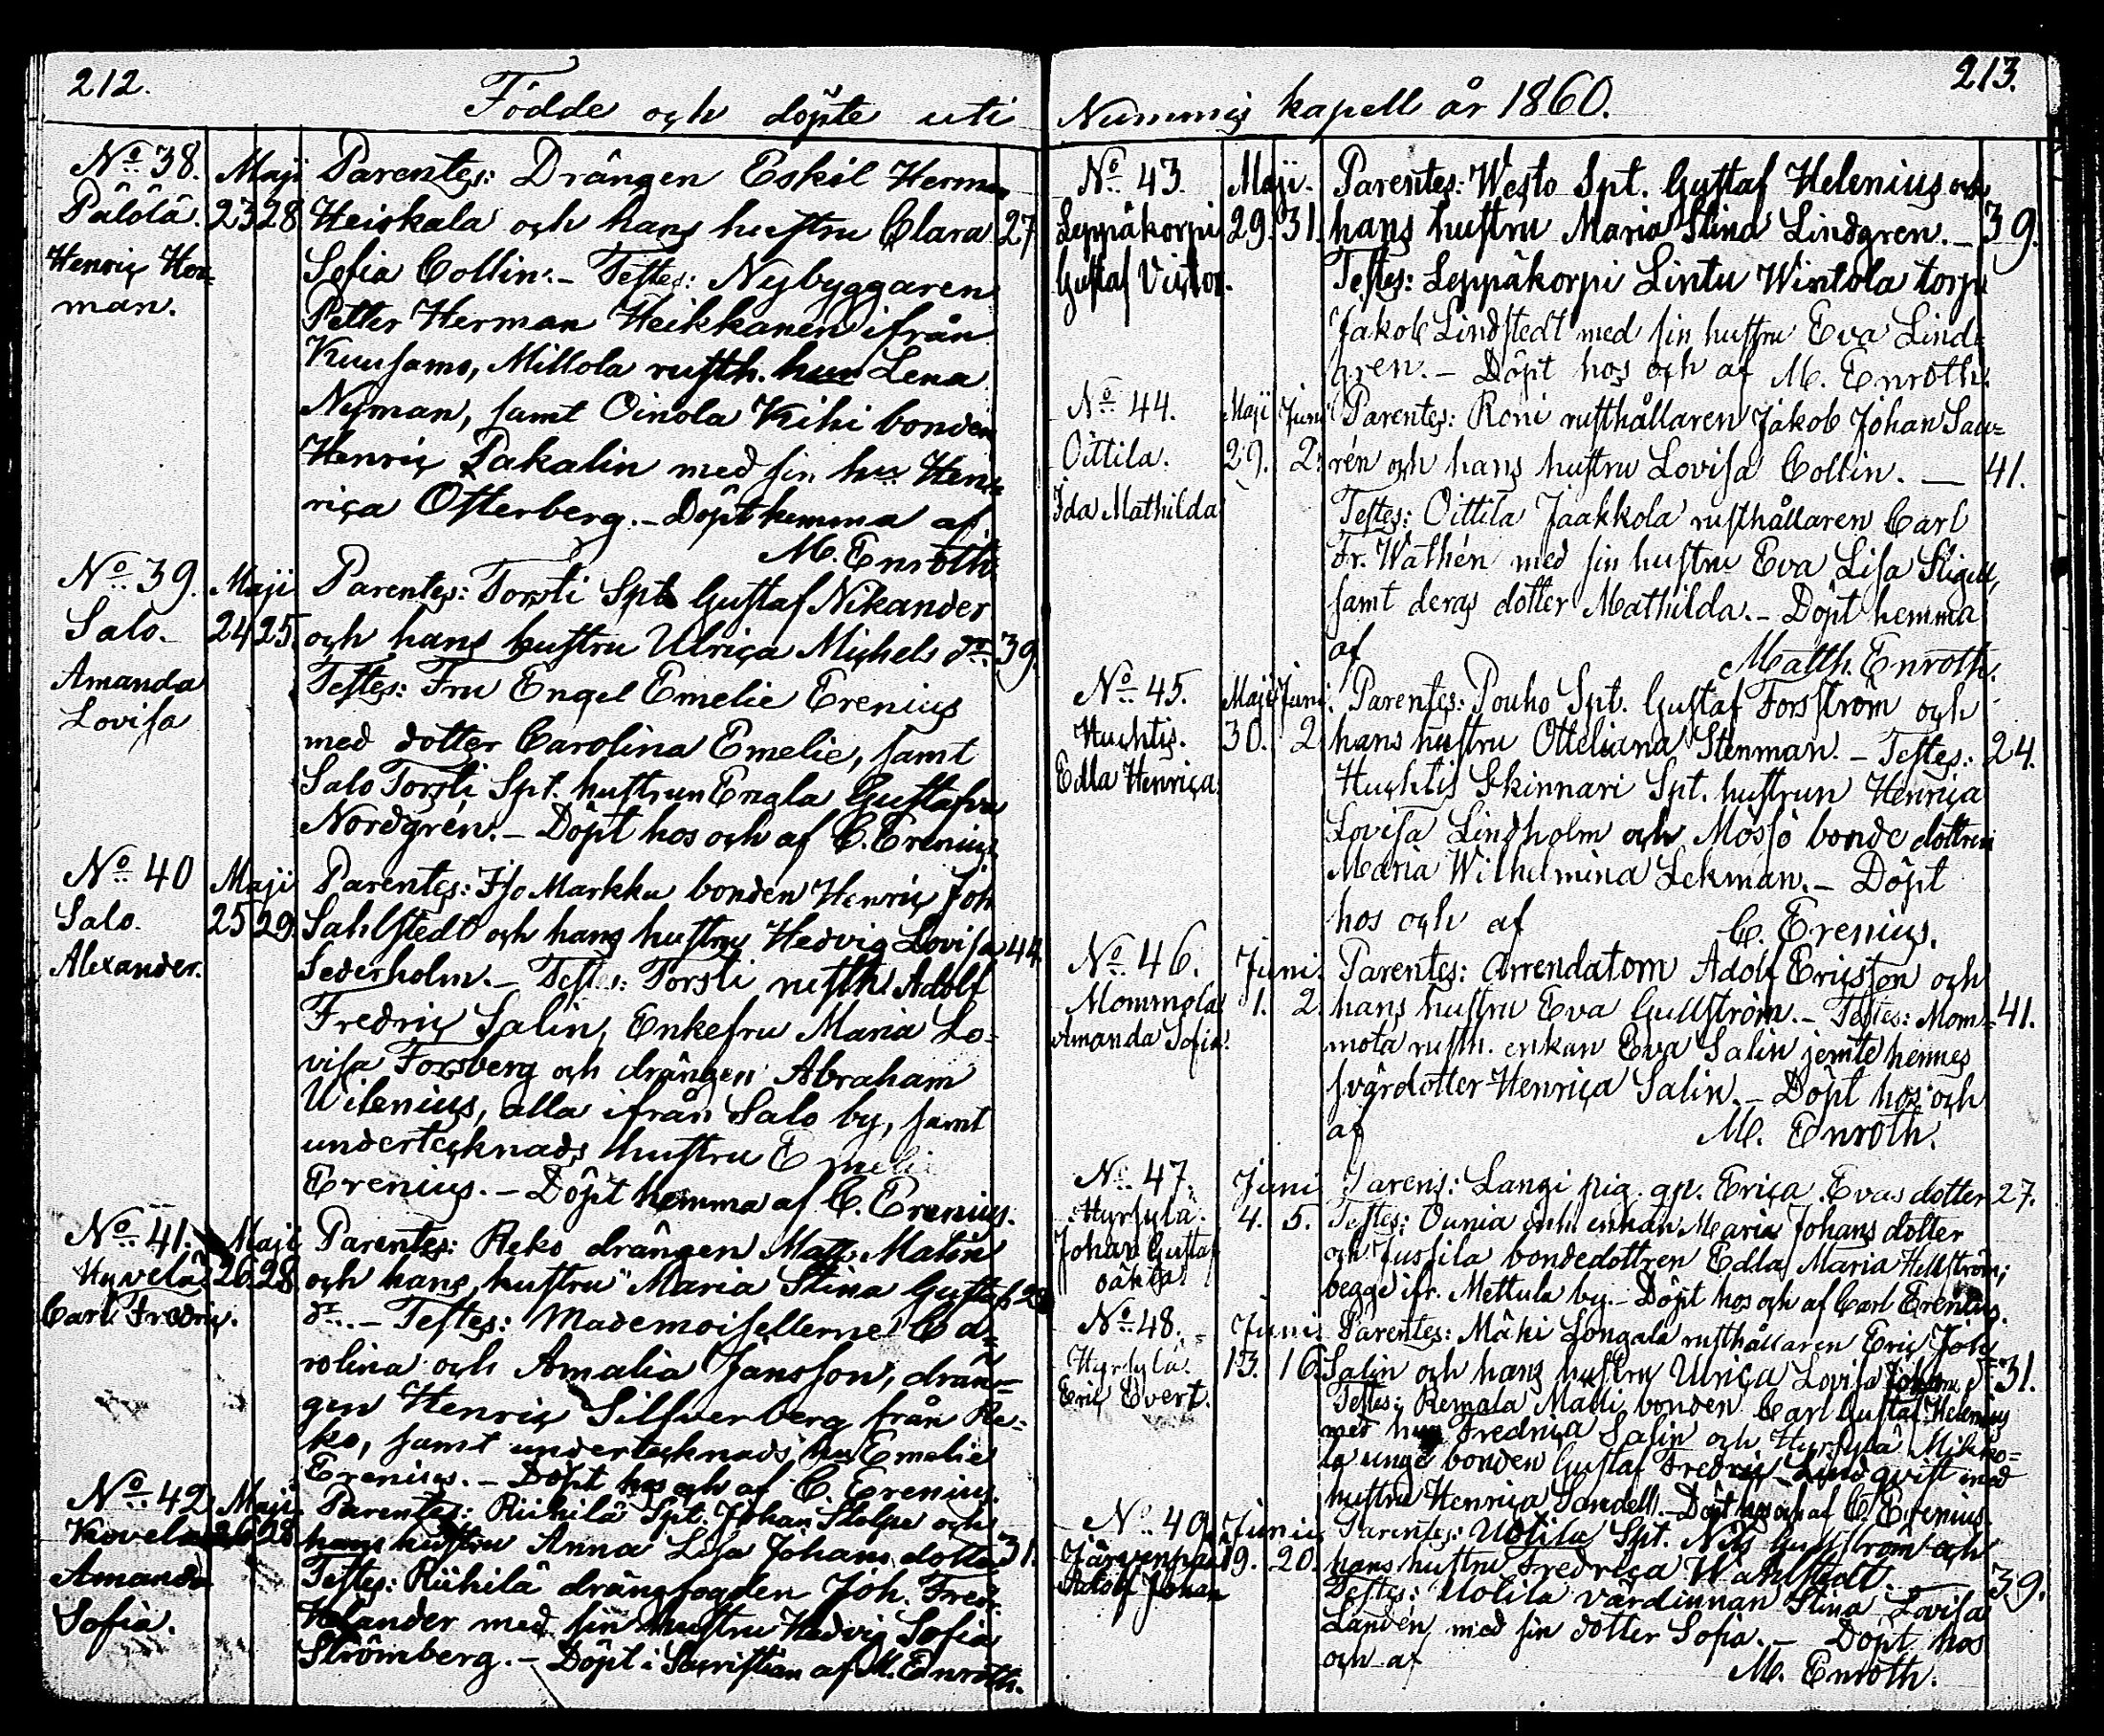 212.
Födde och döpte uti
No 38. Maji Parentes: Drängen Eskil Herman
Pälölä. 23 28 Heiskala och hans hustru Clara 27
Henric Her= Sofia Collin. – Testes: Nybyggaren
man. Petter Herman Heikkanen ifrån
Kuusamo, Millola rusth. hu Lena
Nyman, samt Oinola Kihi bonden
Henric Pakalin med sin hu Hen=
rica Österberg. – Döpt hemma af
M. Enroth.
No 39. Maji Parentes: Torsti Spt. Gustaf Nikander
Salo. 24 25. och hans hustru Ulrica Michels dr. 39.
Amanda Testes: Fru Engel Emelie Erenius
Lovisa med dotter Carolina Emelie, samt
Salo Torsti Spt. hustrun Engla Gustafva
Nordgrén. – Döpt hos och af C. Erenius.
No 40 Maji Parentes: Iso Markku bonden Henric Joh
Salo. 25 29. Sahlstedt och hans hustru Hedvig Lovisa 44.
Alexander. Sederholm. – Testes: Torsti rusth. Adolf
Fredric Salin, Enkefru Maria Lo=
visa Forsberg och drängen Abraham
Wilenius, alla ifrån Salo by, samt
undertecknads hustru Emelie
Erenius. – Döpt hemma af C. Erenius.
No 41. Maji Parentes: Reko drängen Matts Malin
Hyvelä 26 28 och hans hustru Maria Stina Gustafs
Carl Fredric. dr. – Testes: Mademoisellerne Ca=
rolina och Amalia Jansson, drän=
gen Henric Silfverberg från Re=
ko, samt undertecknads hu Emelie
Erenius. – Döpt hos och af C. Erenius.
No 42 Maji Parentes: Riihilä Spt. Johan Stolpe och
Kovela 26 28 hans hustru Anna Lisa Johans dotter 31.
Amanda Testes: Riihilä drängfogden Joh. Fredr.
Sofia. Helander med sin hustru Hedvig Sofia
Strömberg. – Döpt i Sacristian af M. Enroth.
213.
Nummis kapell år 1860.
No 43. Maji. Parentes: Westo Spt. Gustaf Helenius och
Leppäkorpi 29. 31. hans hustru Maria Stina Lindgren. – 39.
Gustaf Victor. Testes: Leppäkorpi Lintu Wintola torp
Jakob Lindstedt med sin hustru Eva Lind=
gren. – Döpt hos och af M. Enroth.
No 44. Maji Juni Parentes: Roni rusthållaren Jakob Johan Sau=
Oittila. 29. 2. rén och hans hustru Lovisa Collin. – 41.
Ida Mathilda Testes: Oittila Jaakkola rusthållaren Carl
Fr. Wathén med sin hustru Eva Lisa Stigell,
samt deras dotter Mathilda. – Döpt hemma
af Matth. Enroth.
No 45. Maji Juni. Parentes: Pouho Spt. Gustaf Forsström och
Huchtis. 30. 2. hans hustru Otteliana Stenman. – Testes: 24.
Edla Henrica Huchtis Skinnari Spt. hustrun Henrica
Lovisa Lindholm och Mössö bonde dottren
Maria Wilhelmina Lekman. – Döpt
hos och af C. Erenius.
No 46. Juni. Parentes: Arrendatorn Adolf Ericsson och
Mommola 1. 2. hans hustru Eva Gullström. – Testes: Mom= 41.
Amanda Sofia. mola rusth. enkan Eva Salin jemte hennes
svärdotter Henrica Salin. – Döpt hos och
af M. Enroth.
No 47. Juni Parens: Langi pig. qp. Erica Evas dotter 27.
Hyrsylä. 4. 5. Testes: Ounia enkan Maria Johans dotter
Johan Gustaf och Jussila bondedottren Edla Maria Hellström;
oäkta. begge ifr. Mettula by. – Döpt hos och af Carl Erenius.
No 48. Juni. Parentes: Mäki Longala rusthållaren Eric Joh
Hyrsylä. 13. 16. Salin och hans hustru Ulrica Lovisa Johans dr. 31.
Eric Evert. Testes: Remala Matti bonden Carl Gustaf Helenius
med hu Fredrica Salin och Hyrsylä Mikko=
la unge bonden Gustaf Fredric Lindqvist med
hustru Henrica Sandell. – Döpt hos och af C. Erenius.
No 49. Junii Parentes: Uotila Spt. Nils Gullström och
Järvenpää 19. 20. hans hustru Fredrica Wahlstedt. – 39.
Adolf Johan Testes: Uotila värdinnan Stina Lovisa
Landén med sin dotter Sofia. – Döpt hos
och af M. Enroth.